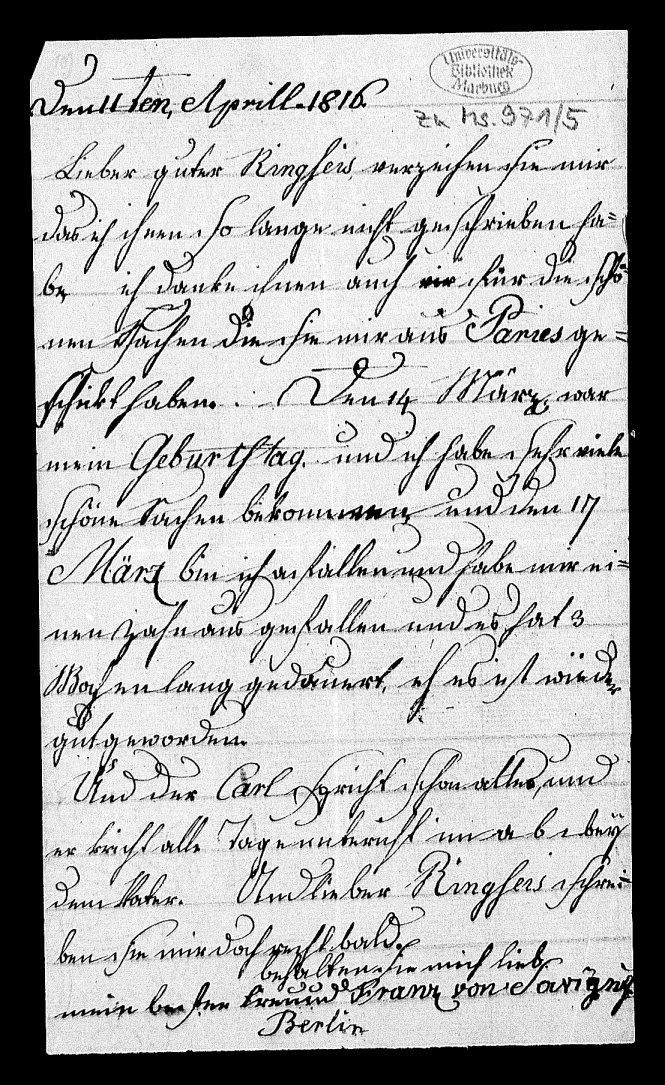 Universitäts-
Bibliothek
Marburg
Zu Hs. 971/5
Den 11ten, Aprill. 1816.
Lieber guter Ringseis, verzeihen sie mir
das ich ihnen so lange nicht geschrieben ha=
be ich danke ihnen auch für die schö
nen Sachen die sie mir aus Paries ge=
schickt haben. Den 14 März, war
mein Geburthtag. und ich habe sehr viele
schöne Sachen bekommen, und den 17
März bin ich gefallen und habe mir ei=
nen Zahn aus gefallen und es hat 3
Wochen lang gedauert, eh es ist wieder
gut geworden.
Und der Carl spricht schon alles, und
er kricht alle Tage unterricht im a b c bey
dem Vater. Und lieber Ringseis schrei=
ben sie mir doch recht bald.
behalten sie mich lieb
mein bester Freund Franz von Savigny
Berlin